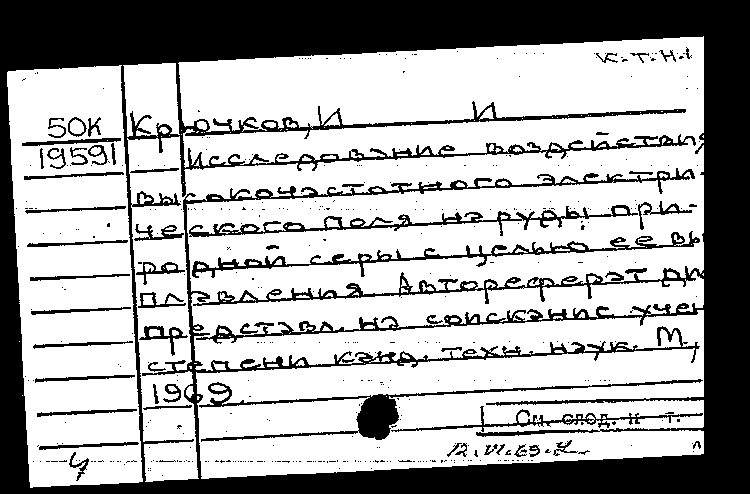 К.Т.Н.
50К Крючков, И И
19591 Исследование воздействия
высокочастотного электри-
ческого поля на руды при-
родной серы с целью ее вы
плавления Автореферат ди
представл. на соискание учен
степени канд. техн. наук. М.,
1969.
См. след. к-т.
12.VI.69.
4